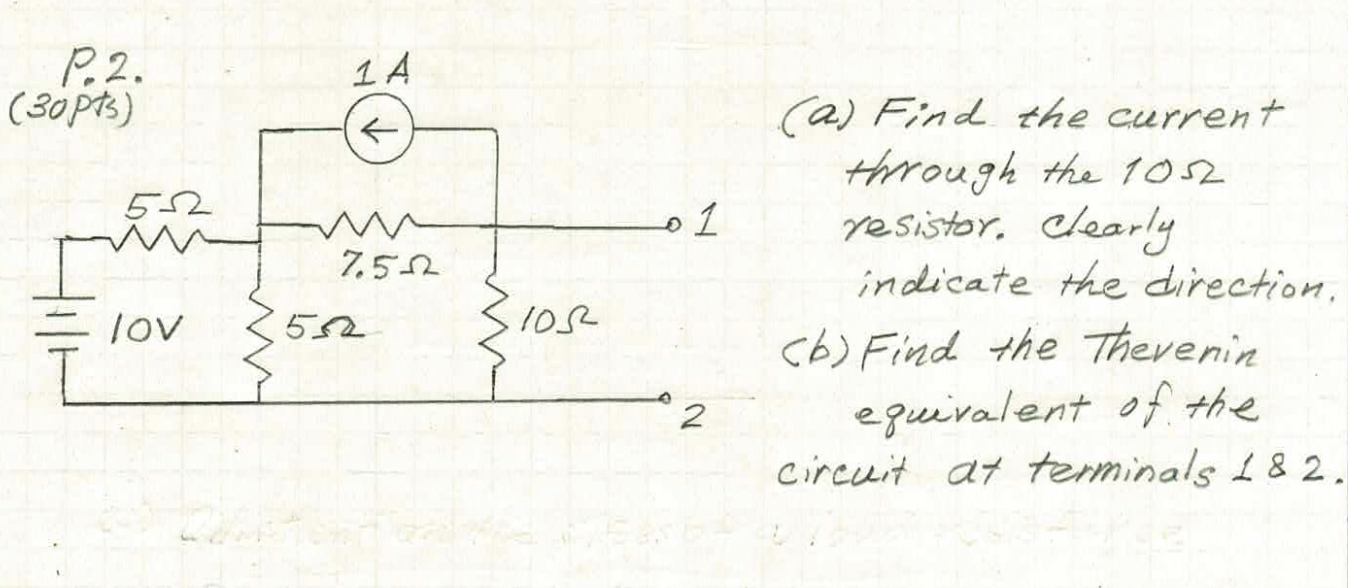 P.2.
(30pts)
1 A
5Ω
7.5Ω
1
10V
5Ω
10Ω
2
(a) Find the current
through the 10Ω
resistor. Clearly
indicate the direction.
(b) Find the Thevenin
equivalent of the
circuit at terminals 1 & 2.